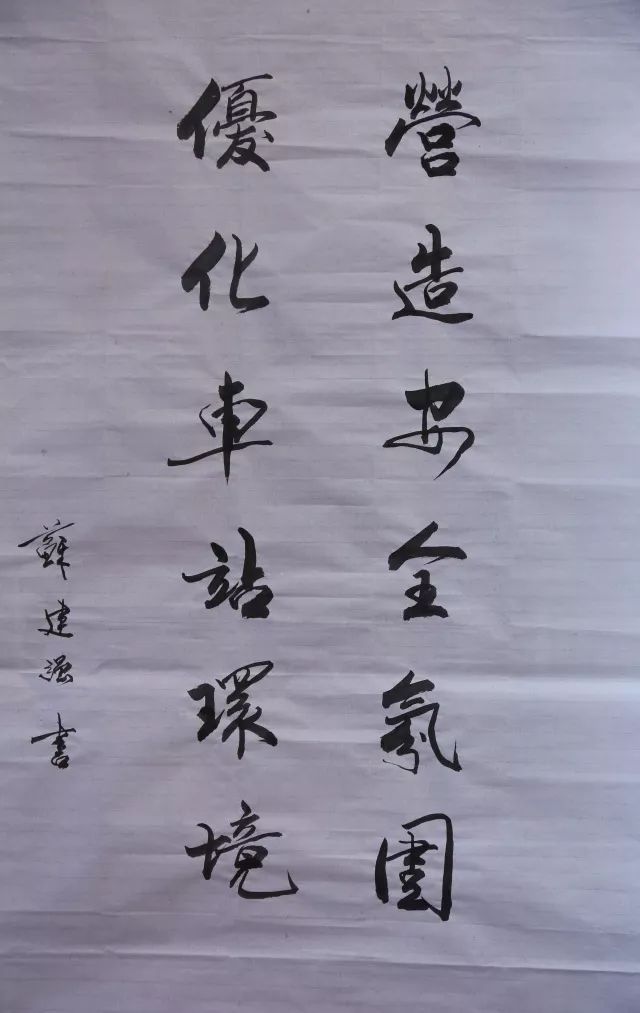 營造安全氛圍
優化車站環境
蘇建強書